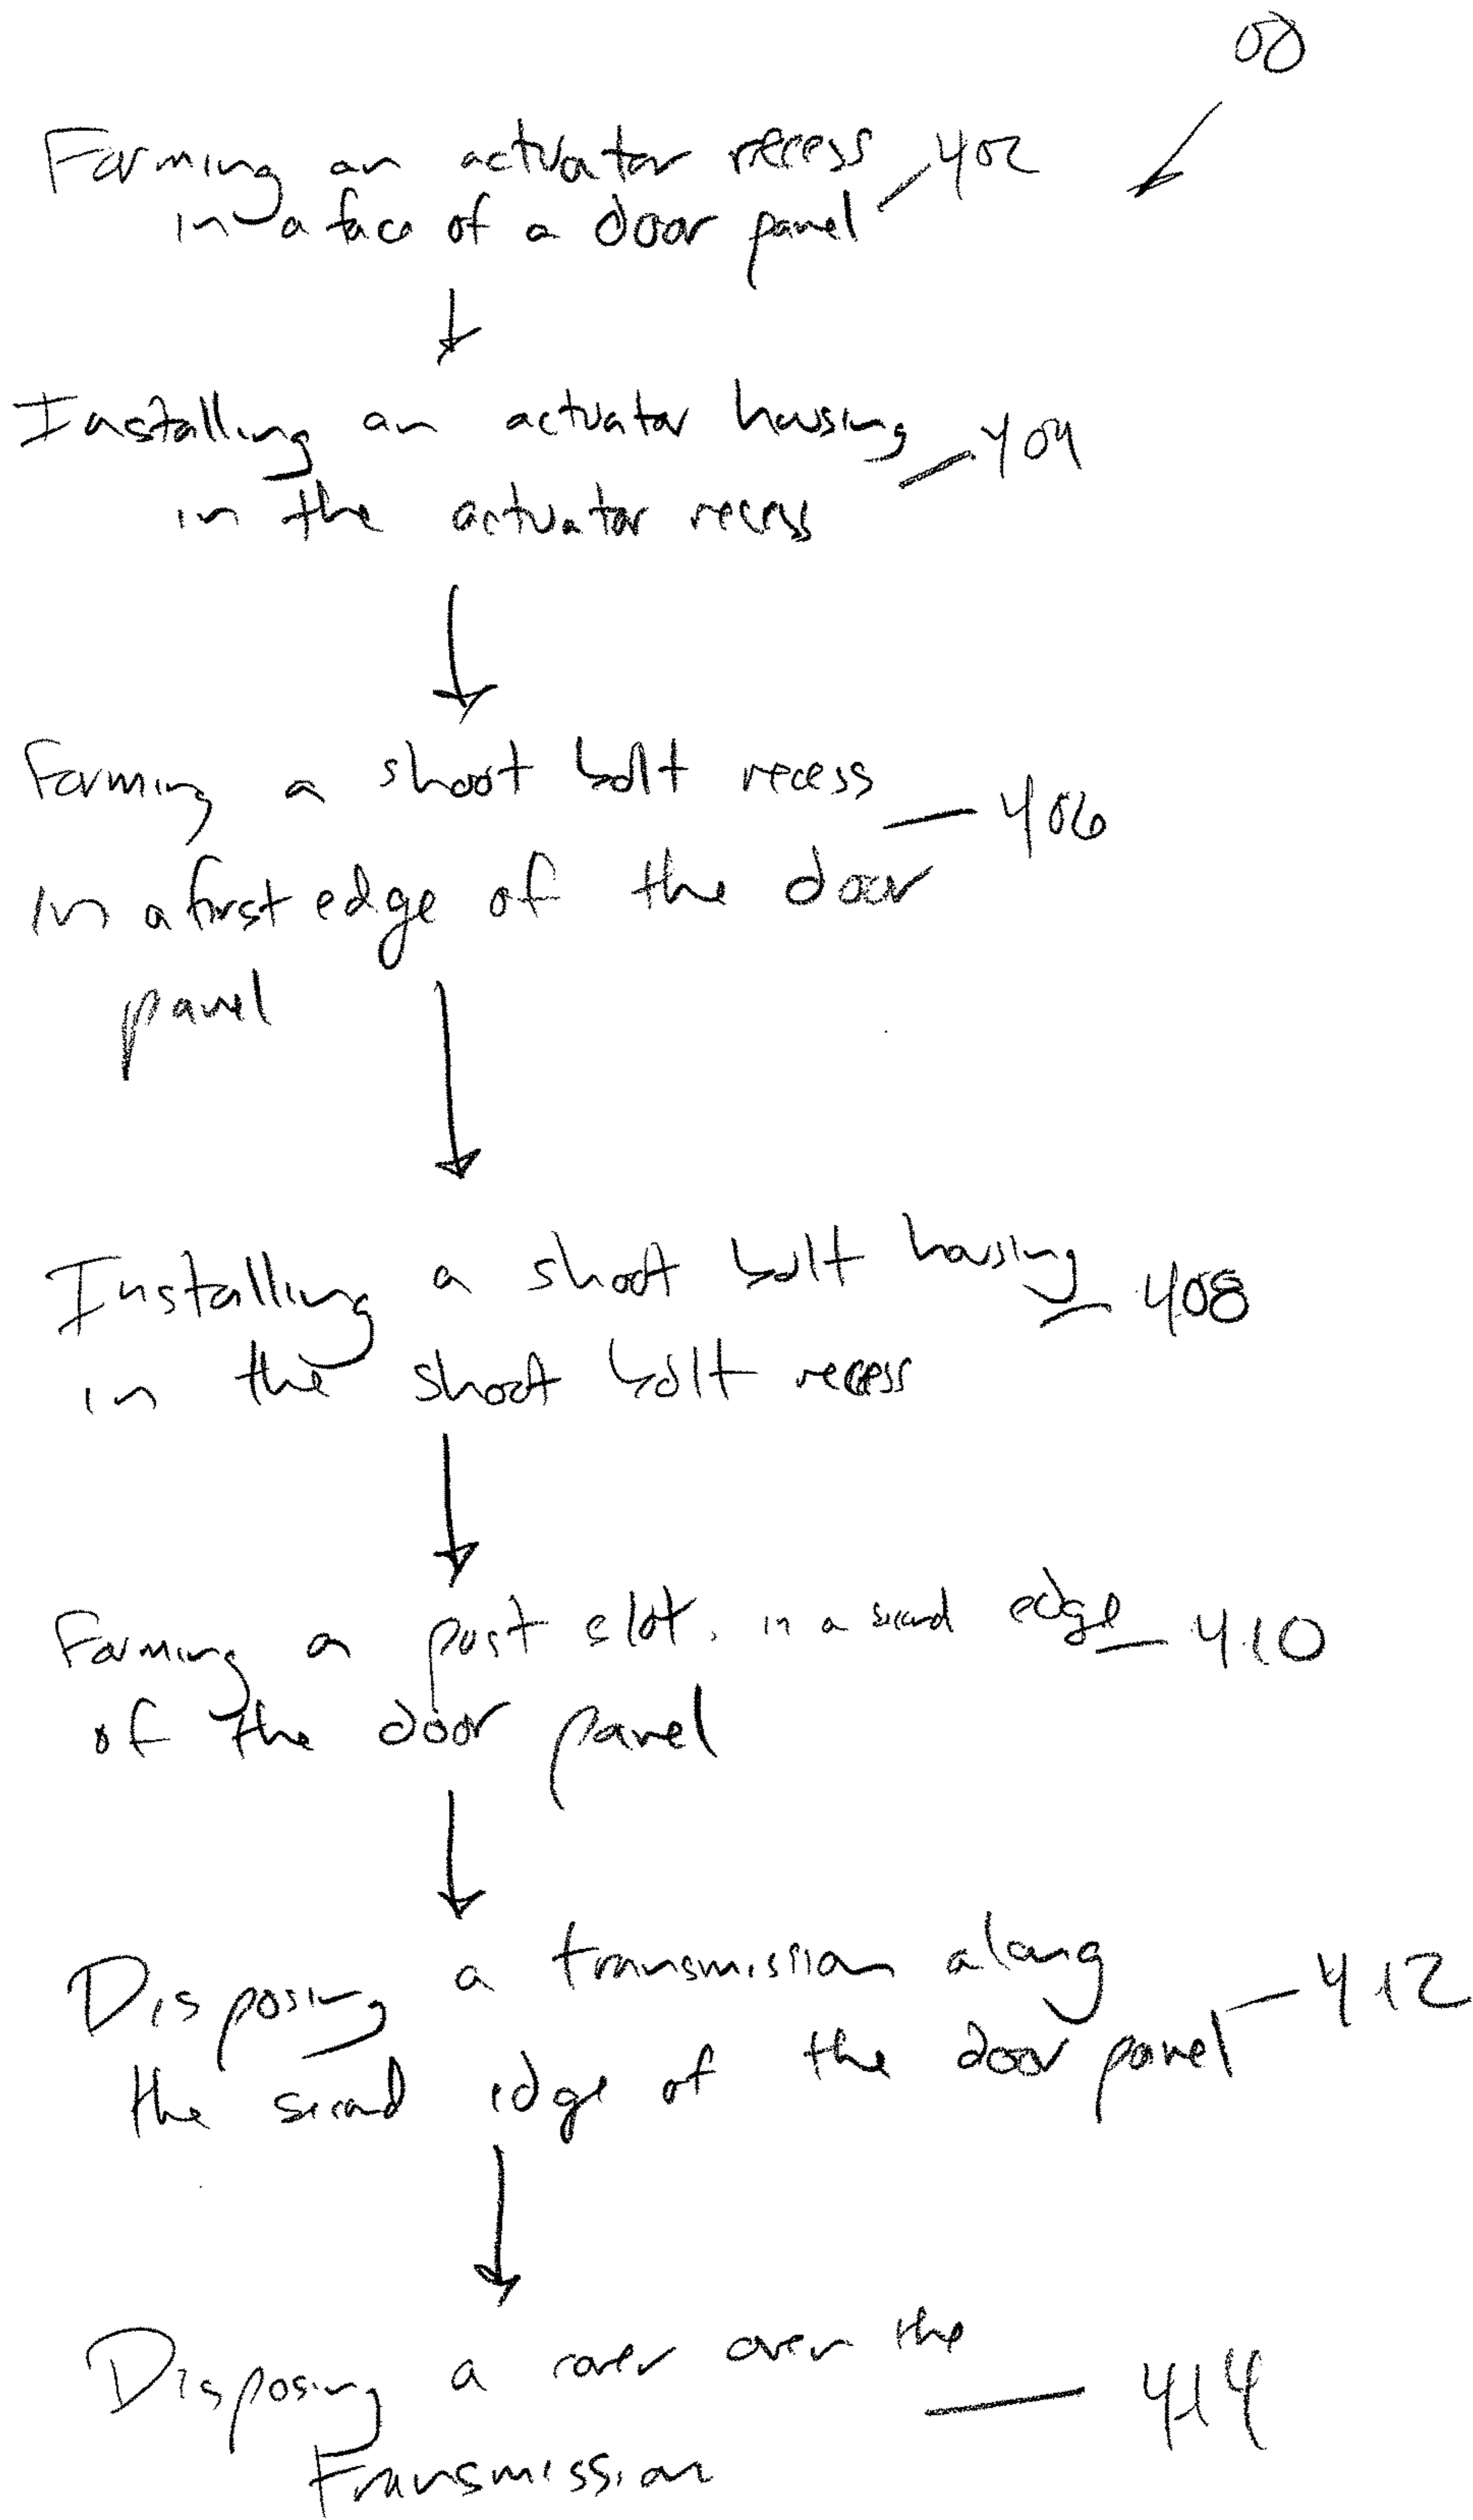 00
Forming an actuator recess 402
in a face of a door panel
Installing an actuator housing 404
in the actuator recess
Forming a shoot bolt recess 406
in a first edge of the door
panel
Installing a shoot bolt housing 408
in the shoot bolt recess
Forming a post slot in a second edge 410
of the door panel
Disposing a transmission along 412
the second edge of the door panel
Disposing a cover over the 414
transmission